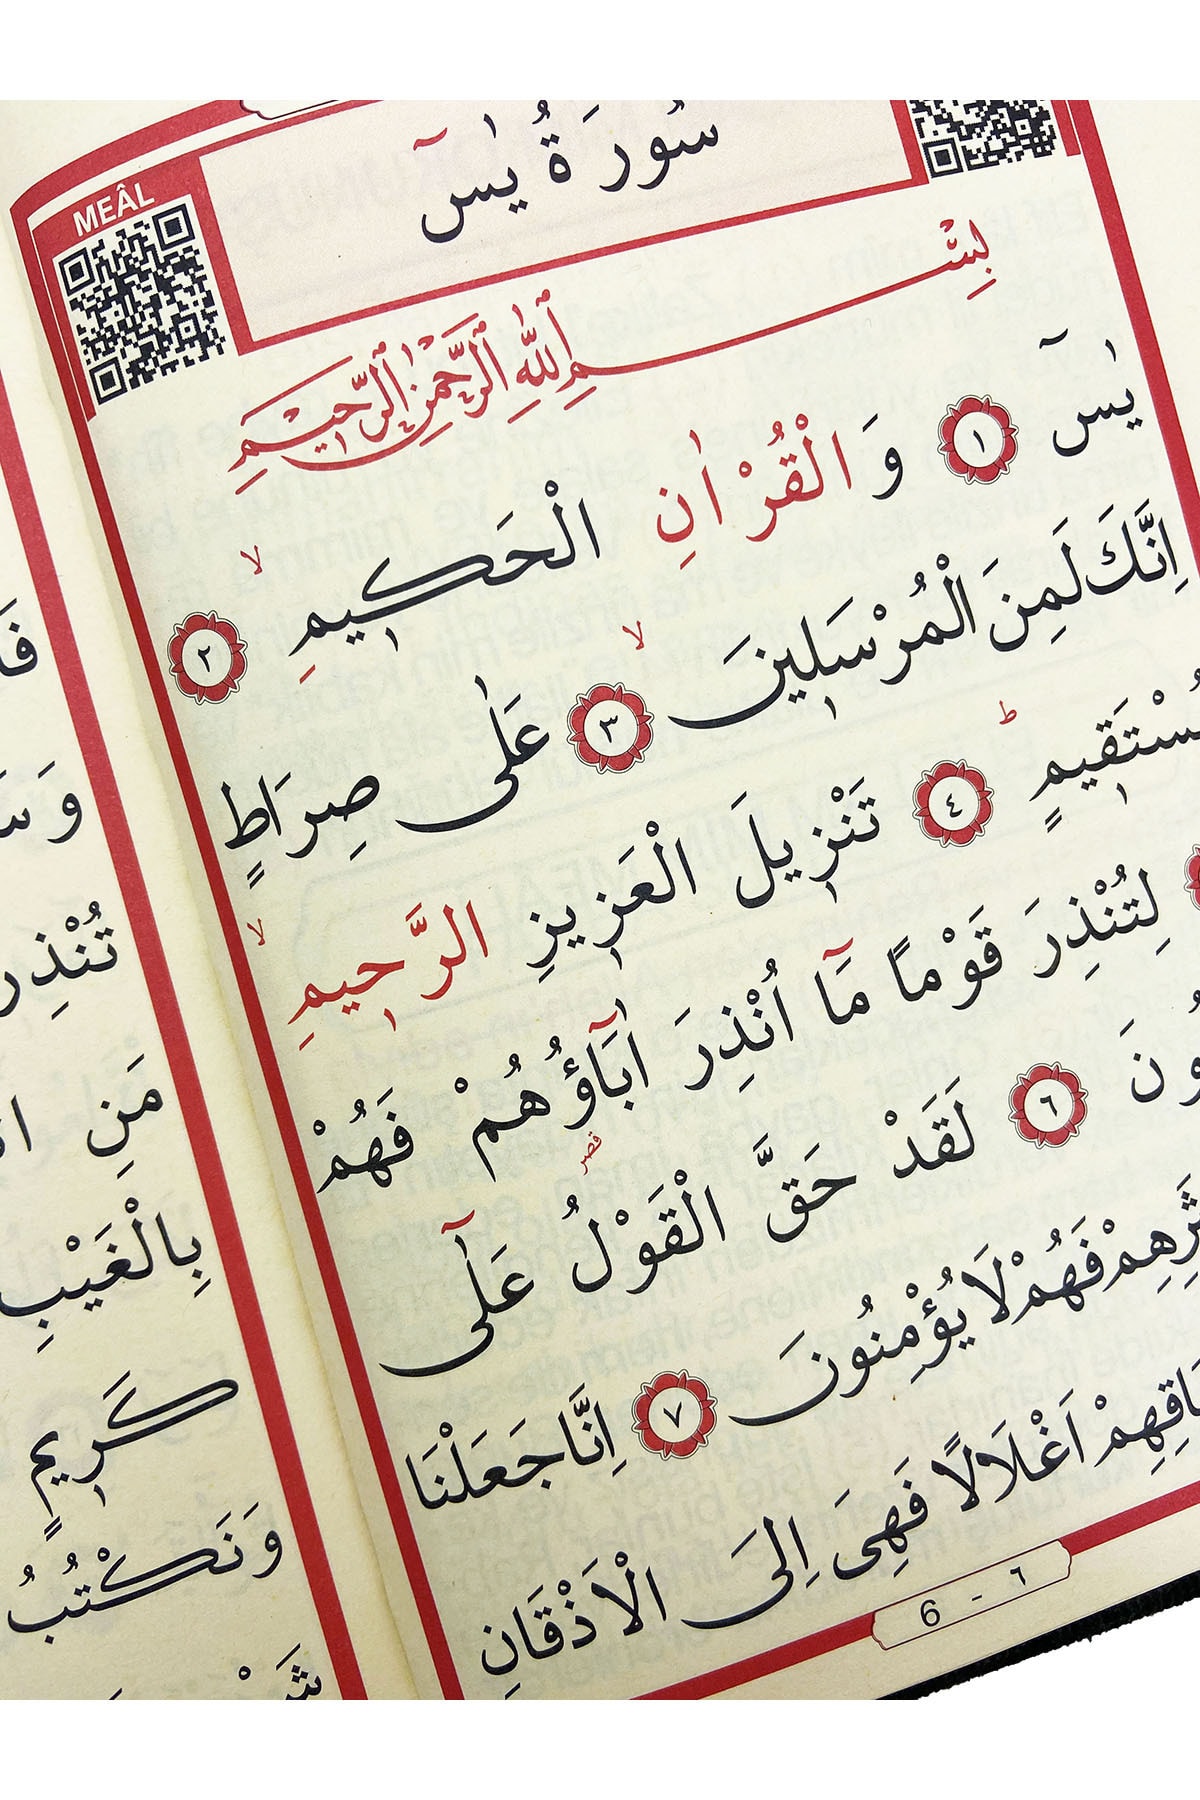 سُورَةُ يٰسٓ
MEÂL
بِسْمِ اللّٰهِ الرَّحْمٰنِ الرَّحِيمِ
يٰسٓ ١ وَالْقُرْاٰنِ الْحَكِيمِ لا ٢
اِنَّكَ لَمِنَ الْمُرْسَلِينَ لا ٣ عَلٰى صِرَاطٍ
تَقِيمٍ ط ٤ تَنْزِيلَ الْعَزِيزِ الرَّحِيمِ لا
لِتُنْذِرَ قَوْمًا مَٓا اُنْذِرَ اٰبَٓاؤُ۬هُمْ فَهُمْ
قصر
ونَ ٦ لَقَدْ حَقَّ الْقَوْلُ عَلٰٓى
ثَرِهِمْ فَهُمْ لَا يُؤْمِنُونَ ٧ اِنَّا جَعَلْنَا
اقِهِمْ اَغْلَالًا فَهِىَ اِلَى الْاَذْقَانِ
6 - ٦
تُنْذِر
مَنِ
بِالْغَيْبِ
كَرِيمٍ
وَنَكْتُبُ